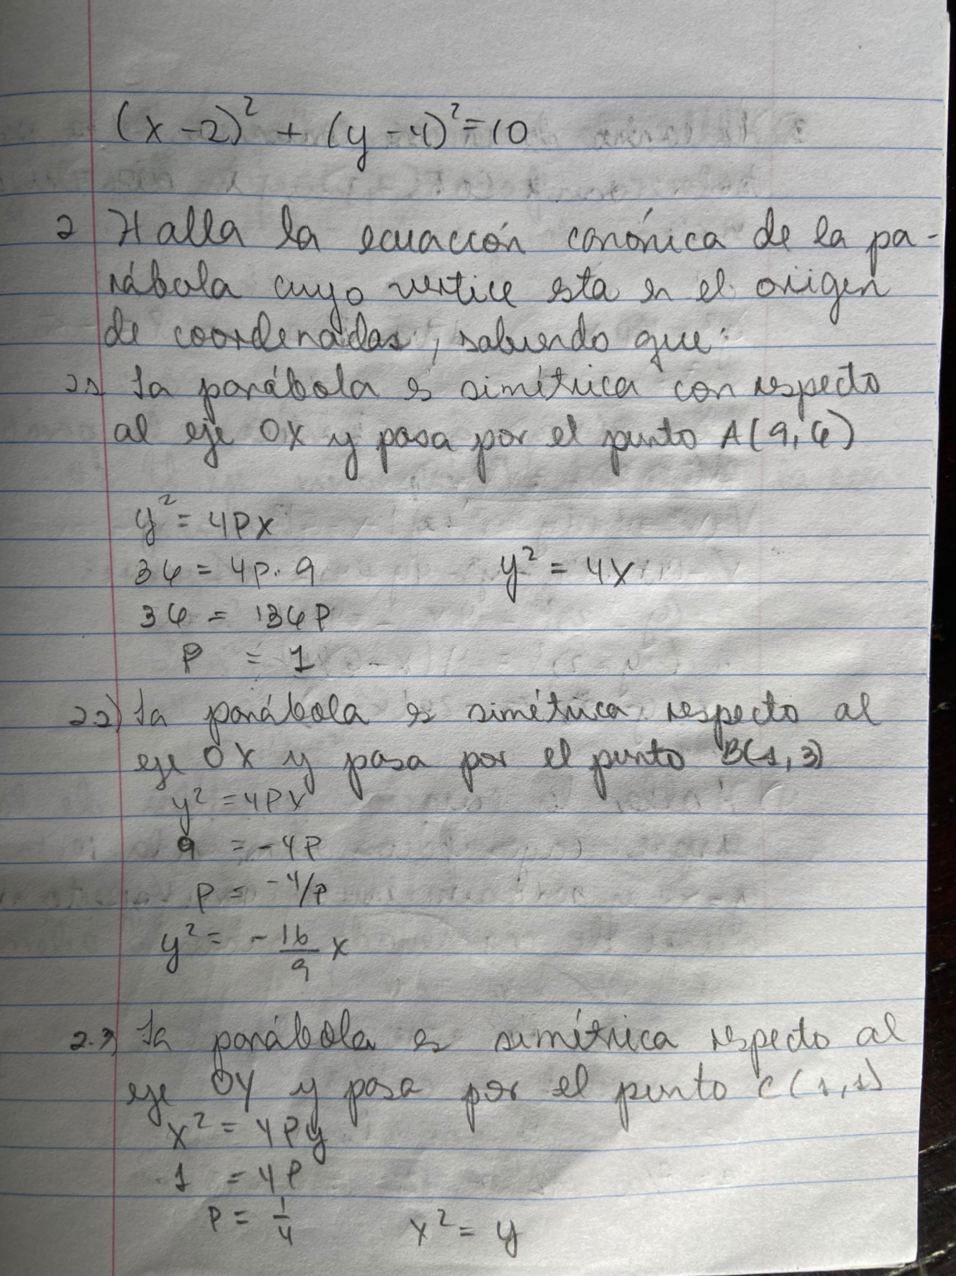 (x-2)² + (y-4)² = 10
2 Halla la ecuacción canónica de la pa-
rábola cuyo vertice esta en el origen
de coordenadas, sabiendo que:
2.1 La parábola es simétrica con respecto
al eje OX y pasa por el punto A(9,6)
y² = 4Px
36 = 4P. 9 y² = 4x
36 = 36P
P = 1
2.2) La parábola es simétrica respecto al
eje OX y pasa por el punto B(1,3)
y² = 4Px
9 = -4P
P = -4/9
y² = -16/9 x
2.3) La parábola es simétrica respecto al
eje OY y pasa por el punto C(1,1)
x² = 4Py
1 = 4P
P = 1/4 x² = y